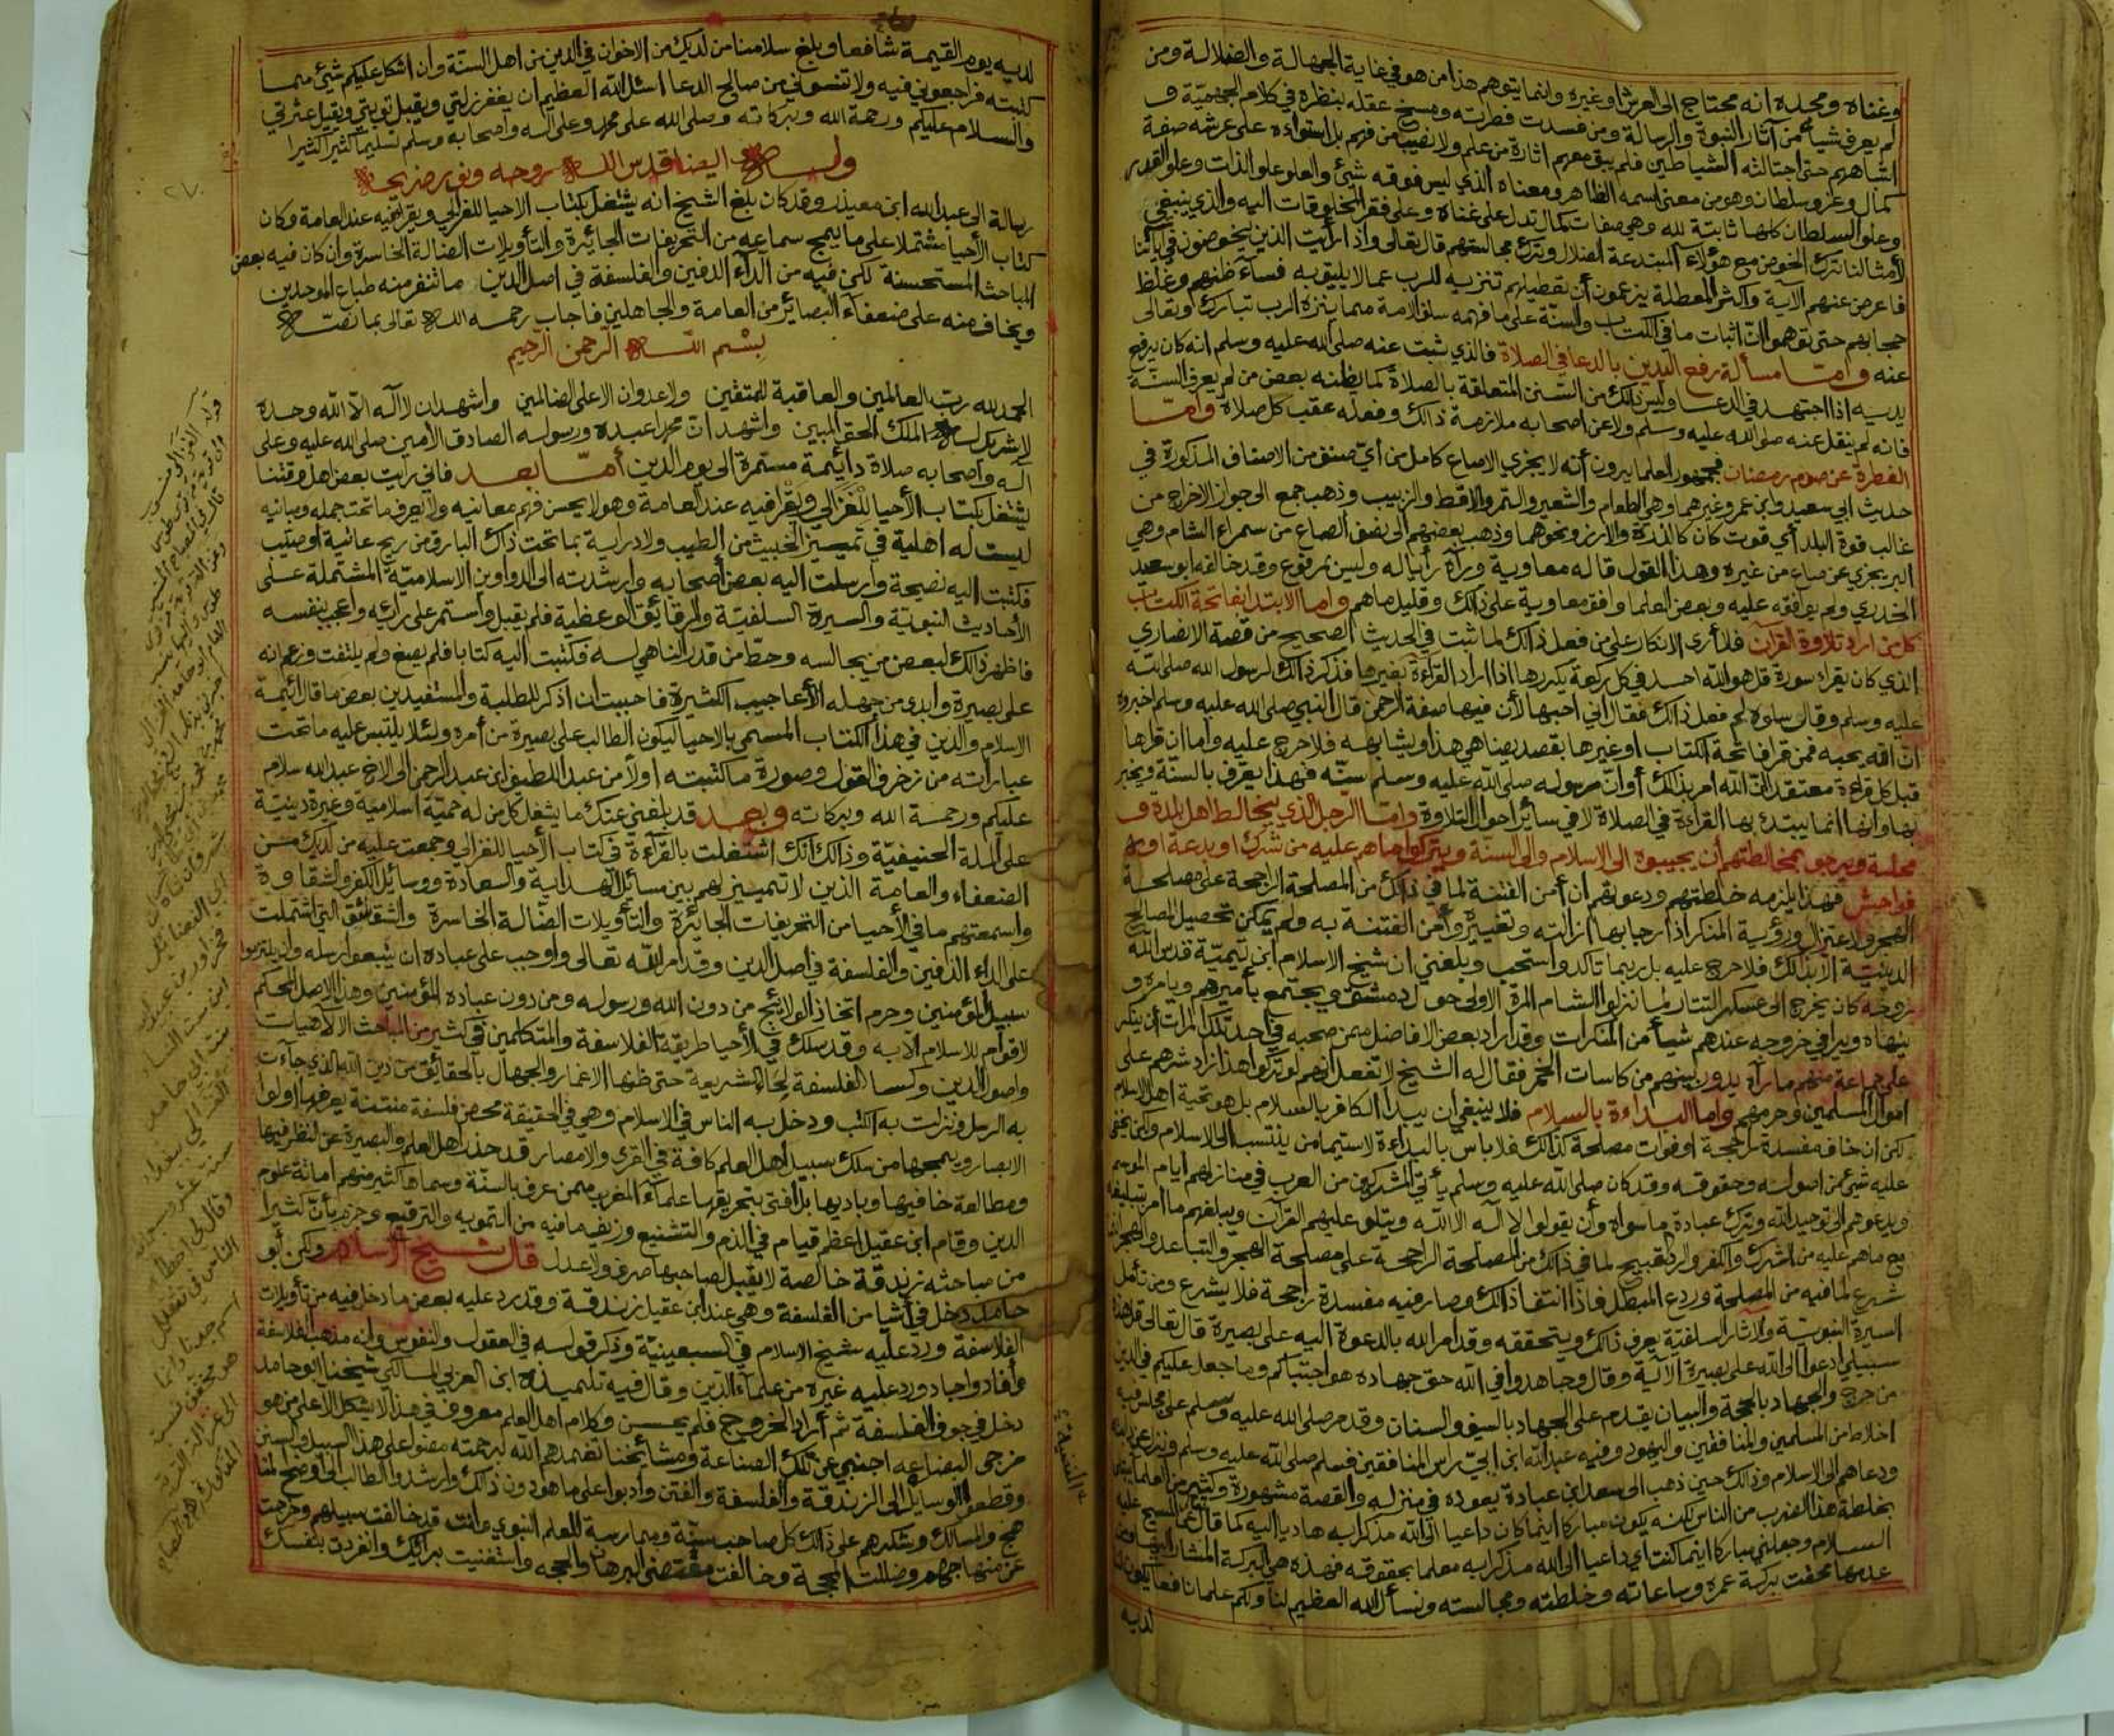 وغناه ومجده انه محتاج الى العرش او غيره وانما يتوهم هذا من هو في غاية الجهالة والضلالة ومن
لم يعرف شيأ من آثار النبوة والرسالة ومن فسدت فطرته ومسخ عقله بنظره في كلام الجهمية و
اشباههم حتى اجتالته الشياطين فلم يبق معهم اثارة من علم ولا نصيب من فهم بل استواءه على عرشه صفة
كمال وعز وسلطان وهو من معنى اسمه الظاهر ومعناه الذي ليس فوقه شئ والعلو علو الذات وعلو القدر
وعلو السلطان كلها ثابتة لله وهي صفات كمال تدل على غناه وعلى فقر المخلوقات اليه والذي ينبغي
لأمثالنا ترك الخوض مع هؤلاء المبتدعة الضلال وترك مجالستهم قال تعالى واذا رأيت الذين يخوضون في آياتنا
فاعرض عنهم الآية واكثر المعطلة يزعمون أن تعطيلهم تنزيه للرب عما لا يليق به فساء ظنهم وغلظ
حجابهم حتى توهموا ان اثبات ما في الكتاب والسنة على ما فهمه سلف الامة مما ينزه الرب تبارك وتعالى
عنه وأما مسألة رفع اليدين بالدعا في الصلاة فالذي ثبت عنه صلى الله عليه وسلم انه كان يرفع
يديه اذا اجتهد في الدعا وليس ذلك من السنن المتعلقة بالصلاة كما يظنه بعض من لم يعرف السنة
فانه لم ينقل عنه صلى الله عليه وسلم ولا عن اصحابه ملازمة ذلك وفعله عقب كل صلاة وأما
الفطرة عن صوم رمضان فجمهور العلما يرون أنه لا يجزي الا صاع كامل من أي صنف من الاصناف المذكورة في
حديث ابي سعيد وابن عمر وغيرهما وهي الطعام والشعير والتمر والاقط والزبيب وذهب جمع الى جواز الاخراج من
غالب قوة البلد أي قوت كان كالذرة والارز ونحوهما وذهب بعضهم الى نصف الصاع من سمراء الشام وهي
البر يجزي عن صاع من غيره وهذا القول قاله معاوية ورآه رأيا له وليس بمرفوع وقد خالفه ابو سعيد
الخدري ولم يوافقه عليه وبعض العلما وافق معاوية على ذلك وقليل ما هم وأما الابتدا بفاتحة الكتاب
كل من اراد تلاوة القرآن فلا أرى الانكار على من فعل ذلك لما ثبت في الحديث الصحيح من قصة الانصاري
الذي كان يقراء سورة قل هو الله احد في كل ركعة يكررها اذا اراد القراءة بغيرها فذكر ذلك لرسول الله صلى الله
عليه وسلم وقال سلوه لم فعل ذلك فقال اني احبها لأن فيها صفة الرحمن قال النبي صلى الله عليه وسلم اخبروه
ان الله يحبه فمن قرا فاتحة الكتاب او غيرها بقصد يضاهي هذا ويشابهه فلا حرج عليه واما ان قراها
قبل كل قراءة معتقدا ان الله امر بذلك أو ان رسوله صلى الله عليه وسلم سنه فهذا يعرف بالسنة ويخبر
بها وانها انما يبتدء بها القراءة في الصلاة لا في سائر احوال التلاوة واما الرجل الذي يخالط اهل بلده و
محلته ويرجو بمخالطتهم أن يجيبوه الى الاسلام والى السنة ويتركوا ما هم عليه من شرك او بدعة او
فواحش فهذا يلزمه خلطتهم ودعوتهم ان أمن الفتنة لما في ذلك من المصلحة الراجحة على مصلحة
الهجر والاعتزال ورؤية المنكر اذا رجا بها ازالته وتغييره وأمن الفتنة به ولم يمكن تحصيل المصالح
الدينية الا بذلك فلا حرج عليه بل ربما تأكد واستحب وبلغني ان شيخ الاسلام ابن تيمية قدس الله
روحه كان يخرج الى عسكر التتار لما نزلوا الشام المرة الاولى حول دمشق ويجتمع بأميرهم ويأمره و
ينهاه ويرا في خروجه عندهم شيأ من المنكرات وقد اراد بعض الافاضل ممن صحبه في احد تلك المرات أن ينكر
على جماعة منهم ما رآه يدور بينهم من كاسات الخمر فقال له الشيخ لا تفعل انهم لو تركوا هذا ازداد شرهم على
اموال المسلمين وحرمهم واما البداءة بالسلام فلا ينبغي ان يبدا الكافر بالسلام بل هو تحية اهل الاسلام
لكن ان خاف مفسدة راجحة او فوات مصلحة كذلك فلا باس بالبداءة لاسيما من ينتسب الى الاسلام ولكن يخفى
عليه شئ من اصوله وحقوقه وقد كان صلى الله عليه وسلم يأتي المشركين من العرب في منازلهم أيام الموسم
ويدعوهم الى توحيد الله وترك عبادة ما سواه وأن يقولوا لا اله الا الله ويتلو عليهم القرآن ويبلغهم ما امر بتبليغه
مع ما هم عليه من الشرك والكفر والرد القبيح لما في ذلك من المصلحة الراجحة على مصلحة الهجر والتباعد والهجر
شرع لما فيه من المصلحة وردع المبطل فاذا انتفا ذلك وصار فيه مفسدة راجحة فلا يشرع ومن تأمل
السيرة النبوية والاثار السلفية يعرف ذلك ويتحققه وقد امر الله بالدعوة اليه على بصيرة قال تعالى قل هذه
سبيلي ادعوا الى الله على بصيرة الآية وقال وجاهدوا في الله حق جهاده هو اجتباكم وما جعل عليكم في الدين
من حرج والجهاد بالحجة والبيان يقدم على الجهاد بالسيف والسنان وقد مر صلى الله عليه وسلم على مجلس فيه
اخلاط من المسلمين والمنافقين واليهود وفيه عبد الله ابن ابي رأس المنافقين فسلم صلى الله عليه وسلم ونزل عن
ودعاهم الى الاسلام وذلك حين ذهب الى سعد ابن عبادة يعوده في منزله والقصة مشهورة وكثير من العلما
بخلطة هذا الضرب من الناس لكنه يكون مباركا اينما كان داعيا الى الله مذكرا به هاديا اليه كما قال عن المسيح عليه
السلام وجعلني مباركا اينما كنت أي داعيا الى الله مذكرا به معلما بحقوقه فهذه هي البركة المشار اليها ومن
عدمها محقت بركة عمره وساعاته وخلطته ومجالسته ونسأل الله العظيم لنا ولكم علما نافعا يكون لنا
لديه
لديه يوم القيمة شافعا وبلغ سلامنا من لديك من الاخوان في الدين من اهل السنة وان اشكل عليكم شئ مما
كتبته فراجعوني فيه ولا تنسوني من صالح الدعا اسئل الله العظيم ان يغفر زلتي ويقبل توبتي ويقيل عثرتي
والسلام عليكم ورحمة الله وبركاته وصلى الله على محمد وعلى آله واصحابه وسلم تسليما كثيرا كثيرا
وله ايضا قدس الله روحه ونور ضريحه
رسالة الى عبد الله ابن معيذر وقد كان بلغ الشيخ انه يشتغل بكتاب الاحيا للغزالي ويقرأ فيه عند العامة وكان
كتاب الأحيا مشتملا على ما يمج سماعه من التحريفات الجائرة والتأويلات الضالة الخاسرة وان كان فيه بعض
المباحث المستحسنة لكن فيه من الداء الدفين والفلسفة في اصل الدين ما تنفر منه طباع الموحدين
ويخاف منه على ضعفاء البصائر من العامة والجاهلين فاجاب رحمه الله تعالى بما نصه
بسم الله الرحمن الرحيم
الحمد لله رب العالمين والعاقبة للمتقين ولا عدوان الا على الظالمين واشهد ان لا آله الا الله وحده
لا شريك له الملك الحق المبين واشهد ان محمدا عبده ورسوله الصادق الأمين صلى الله عليه وعلى
آله واصحابه صلاة دائمة مستمرة الى يوم الدين أما بعد فاني رايت بعض اهل وقتنا
يشتغل بكتاب الأحيا للغزالي ويقرا فيه عند العامة وهو لا يحسن فهم معانيه ولا يعرف ما تحت جمله ومبانيه
ليست له اهلية في تمييز الخبيث من الطيب ولا دراية بما تحت ذلك البارق من ريح عاتية أو صيب
فكتبت اليه نصيحة وأرسلت اليه بعض أصحابه وارشدته الى الدواوين الاسلامية المشتملة على
الأحاديث النبوية والسيرة السلفية والرقائق الوعظية فلم يقبل واستمر على رائه واعجب بنفسه
فاظهر ذلك لبعض من يجالسه وحط من قدر الناهي له فكتبت اليه كتابا فلم يصغ ولم يلتفت وزعم انه
على بصيرة وأبدى من جهله الأعاجيب الكثيرة فاحببت ان اذكر للطلبة والمستفيدين بعض ما قال ائمة
الاسلام والدين في هذا الكتاب المسمى بالاحيا ليكون الطالب على بصيرة من أمره ولئلا يلتبس عليه ما تحت
عباراته من زخرف القول وصورة ما كتبته اولا من عبد اللطيف ابن عبد الرحمن الى الاخ عبد الله سلام
عليكم ورحمة الله وبركاته وبعد فقد بلغني عنك ما يشغل كل من له حمية اسلامية وغيرة دينية
على الملة الحنيفية وذلك انك اشتغلت بالقراءة في كتاب الأحيا للغزالي وجمعت عليه من لديك من
الضعفاء والعامة الذين لا تمييز لهم بين مسائل الهداية والسعادة ووسائل الكفر والشقاوة
واسمعتهم ما في الأحيا من التحريفات الجائرة والتأويلات الضالة الخاسرة والشقاشق التي اشتملت
على الداء الدفين والفلسفة في اصل الدين وقد امر الله تعالى واوجب على عباده ان يتبعوا رسله وان يلتزموا
سبيل المؤمنين وحرم اتخاذ الولائج من دون الله ورسوله ومن دون عباده المؤمنين وهذا الاصل المحكم
لا قوام للاسلام الا به وقد سلك في الأحيا طريقة الفلاسفة والمتكلمين في كثير من المباحث الالاهيات
واصول الدين وكسا الفلسفة لحاء الشريعة حتى ظنها الاغمار والجهال بالحقائق من دين الله الذي جاءت
به الرسل ونزلت به الكتب ودخل به الناس في الاسلام وهي في الحقيقة محض فلسفة منتنة يعرفها اولوا
الابصار ويمجها من سلك سبيل أهل العلم كافة في القرى والامصار قد حذر اهل العلم والبصيرة عن النظر فيها
ومطالعة خافيها وباديها بل افتى بتحريقها علماء المغرب ممن عرف بالسنة وسماها كثير منهم اماتة علوم
الدين وقام ابن عقيل اعظم قيام في الذم والتشنيع وزيف ما فيه من التمويه والترقيع وجزم بأن كثيرا
من مباحثه زندقة خالصة لا يقبل لصاحبها صرف ولا عدل قال شيخ الاسلام ولكن أبو
حامد دخل في أشيا من الفلسفة وهي عند ابن عقيل زندقة وقد رد عليه بعض ما دخل فيه من تأويلات
الفلاسفة ورد عليه شيخ الاسلام في السبعينية وذكر قوله في العقول والنفوس وانه مذهب الفلاسفة
وأفاد واجاد ورد عليه غيره من علماء الدين وقال فيه تلميذه ابن العربي المالكي شيخنا ابو حامد
دخل في جوف الفلسفة ثم أراد الخروج فلم يحسن وكلام اهل العلم معروف في هذا لا يشكل الا على من هو
مزجى البضاعه اجنبي عن تلك الصناعة ومشائخنا تغمدهم الله برحمته مضوا على هذا السبيل والسنن
وقطعوا الوسايل الى الزندقة والفلسفة والفتن وأدبوا على ما هو دون ذلك وارشدوا الطالب الى اوضح المنا
هج والمسالك وشكرهم على ذلك كل صاحب سنة وممارسة للعلم النبوي وانت قد خالفت سبيلهم وخرجت
عن منهاجهم وضللت المحجة وخالفت مقتضى البرهان والحجه واستغنيت برائك وانفردت بنفسك